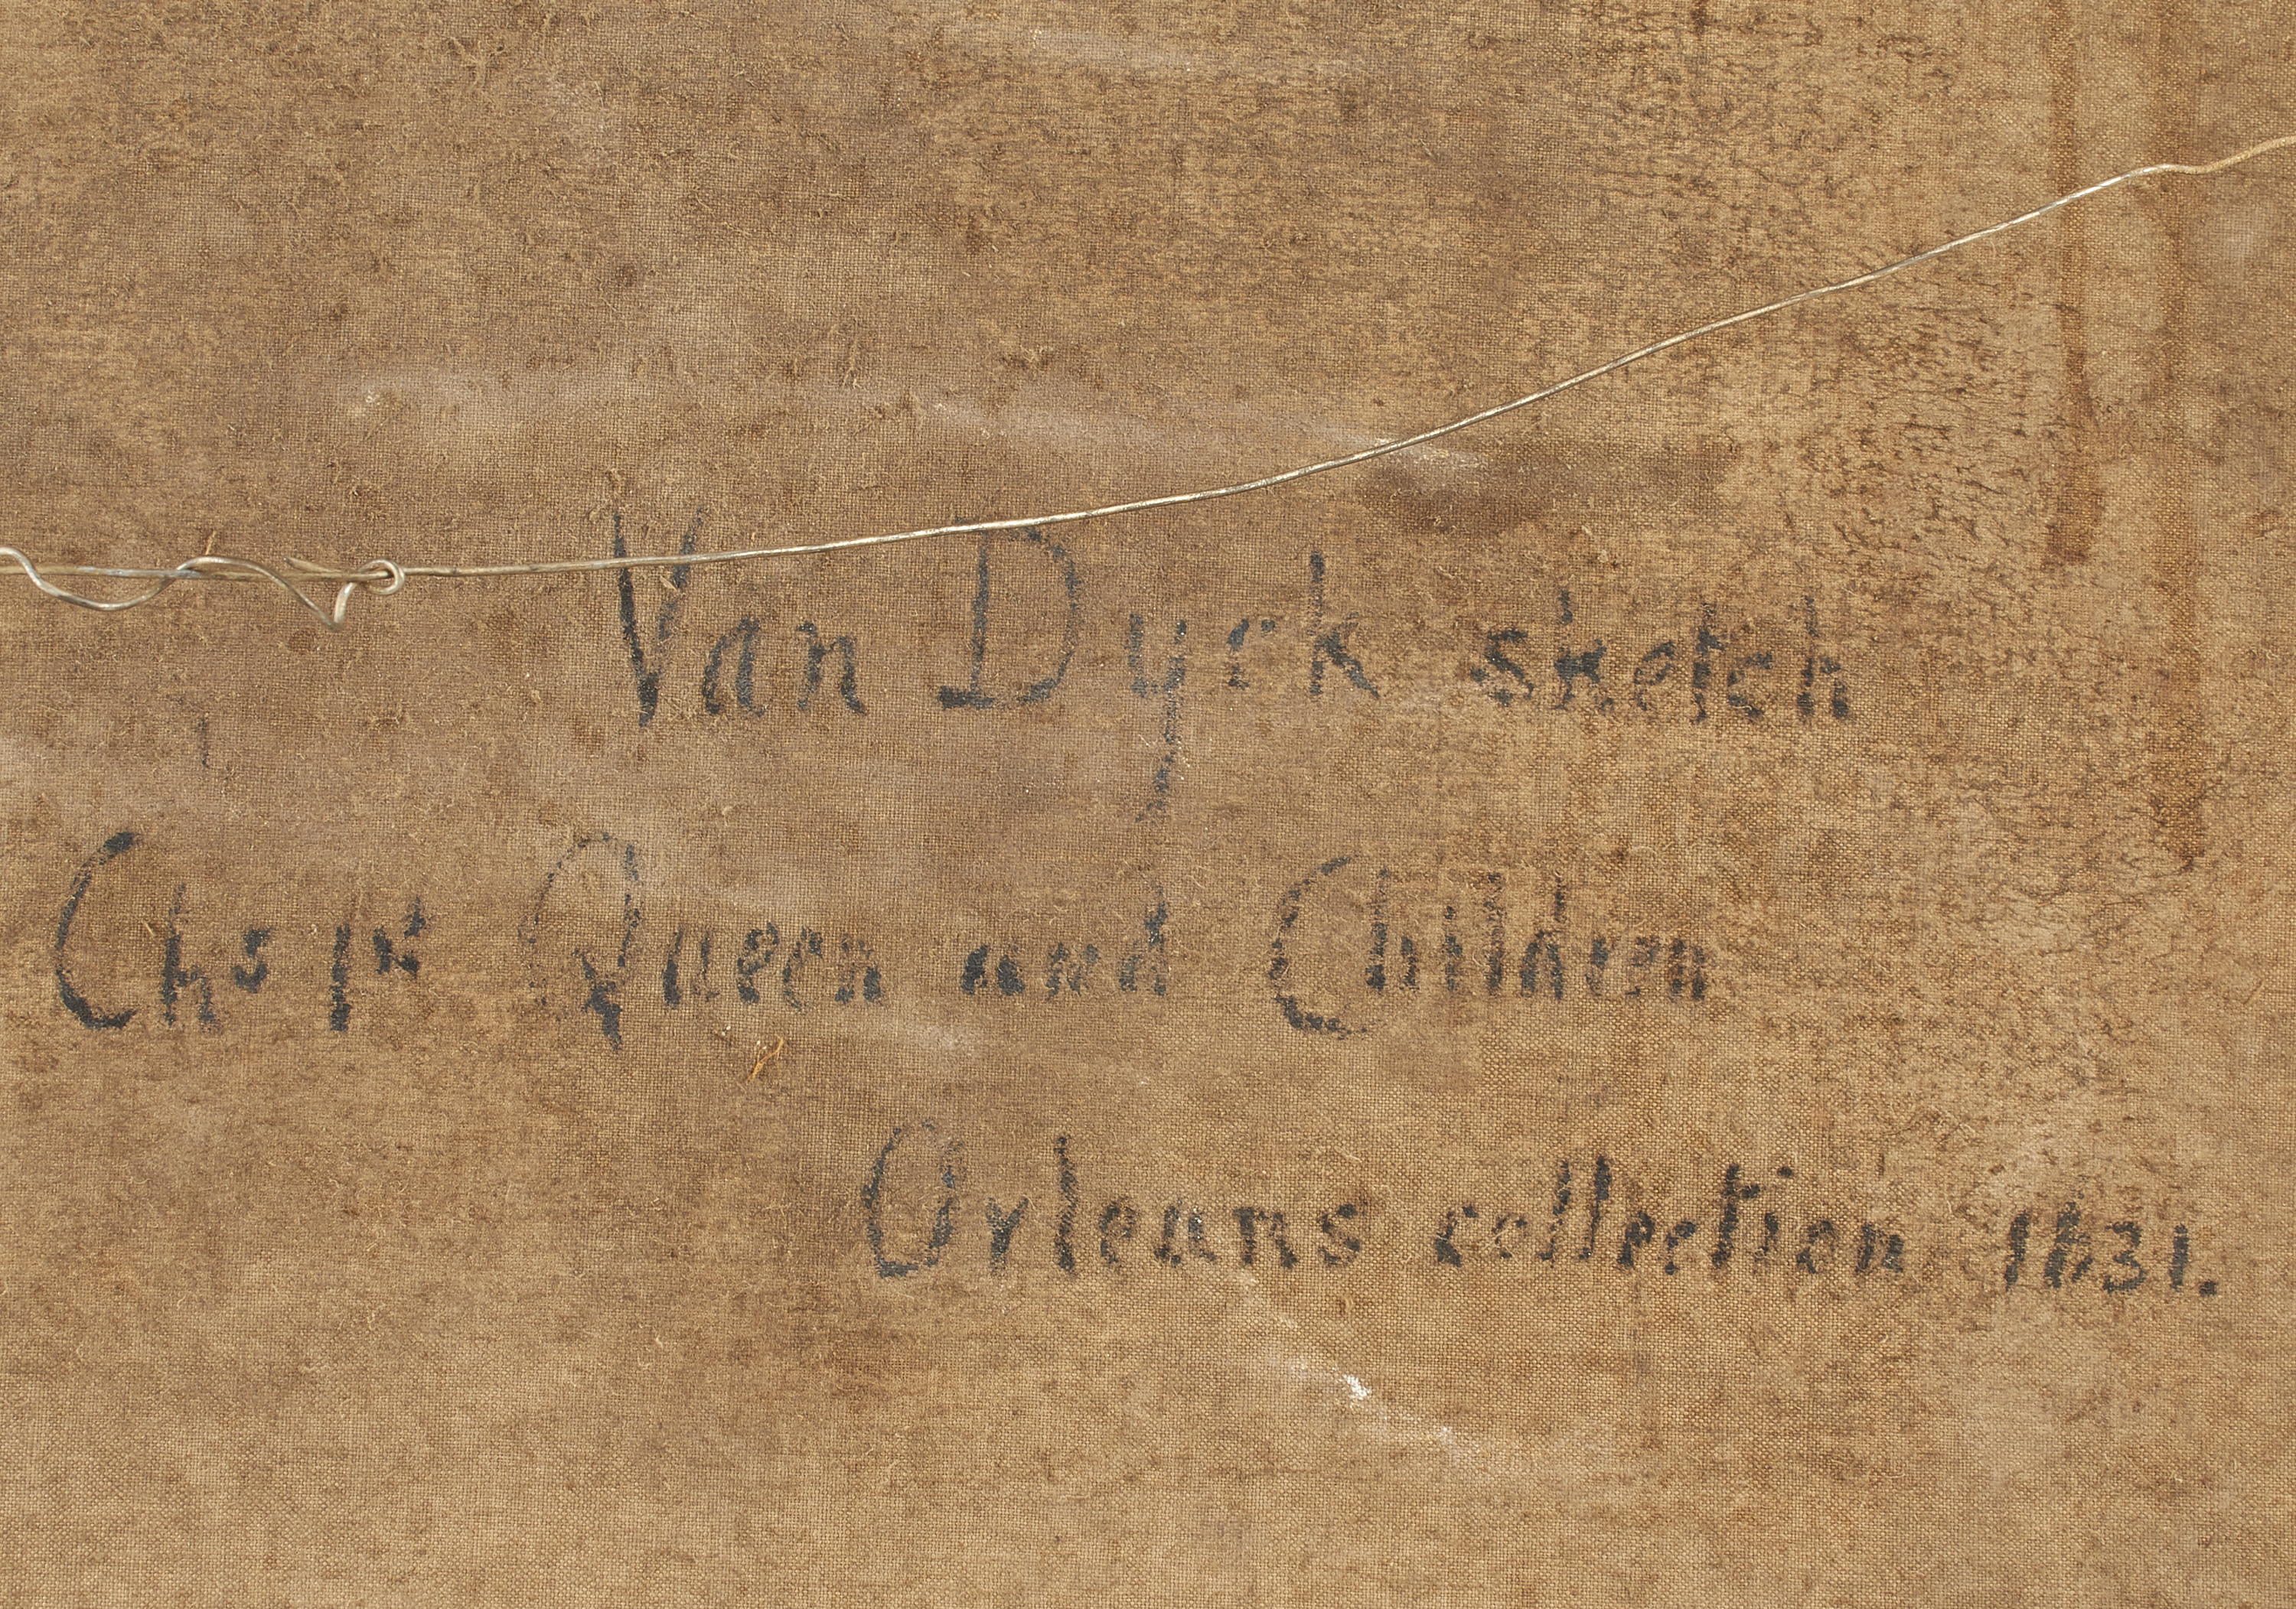 Van Dyck sketch
Chs 1st Queen and Children
Orleans collection 1631.